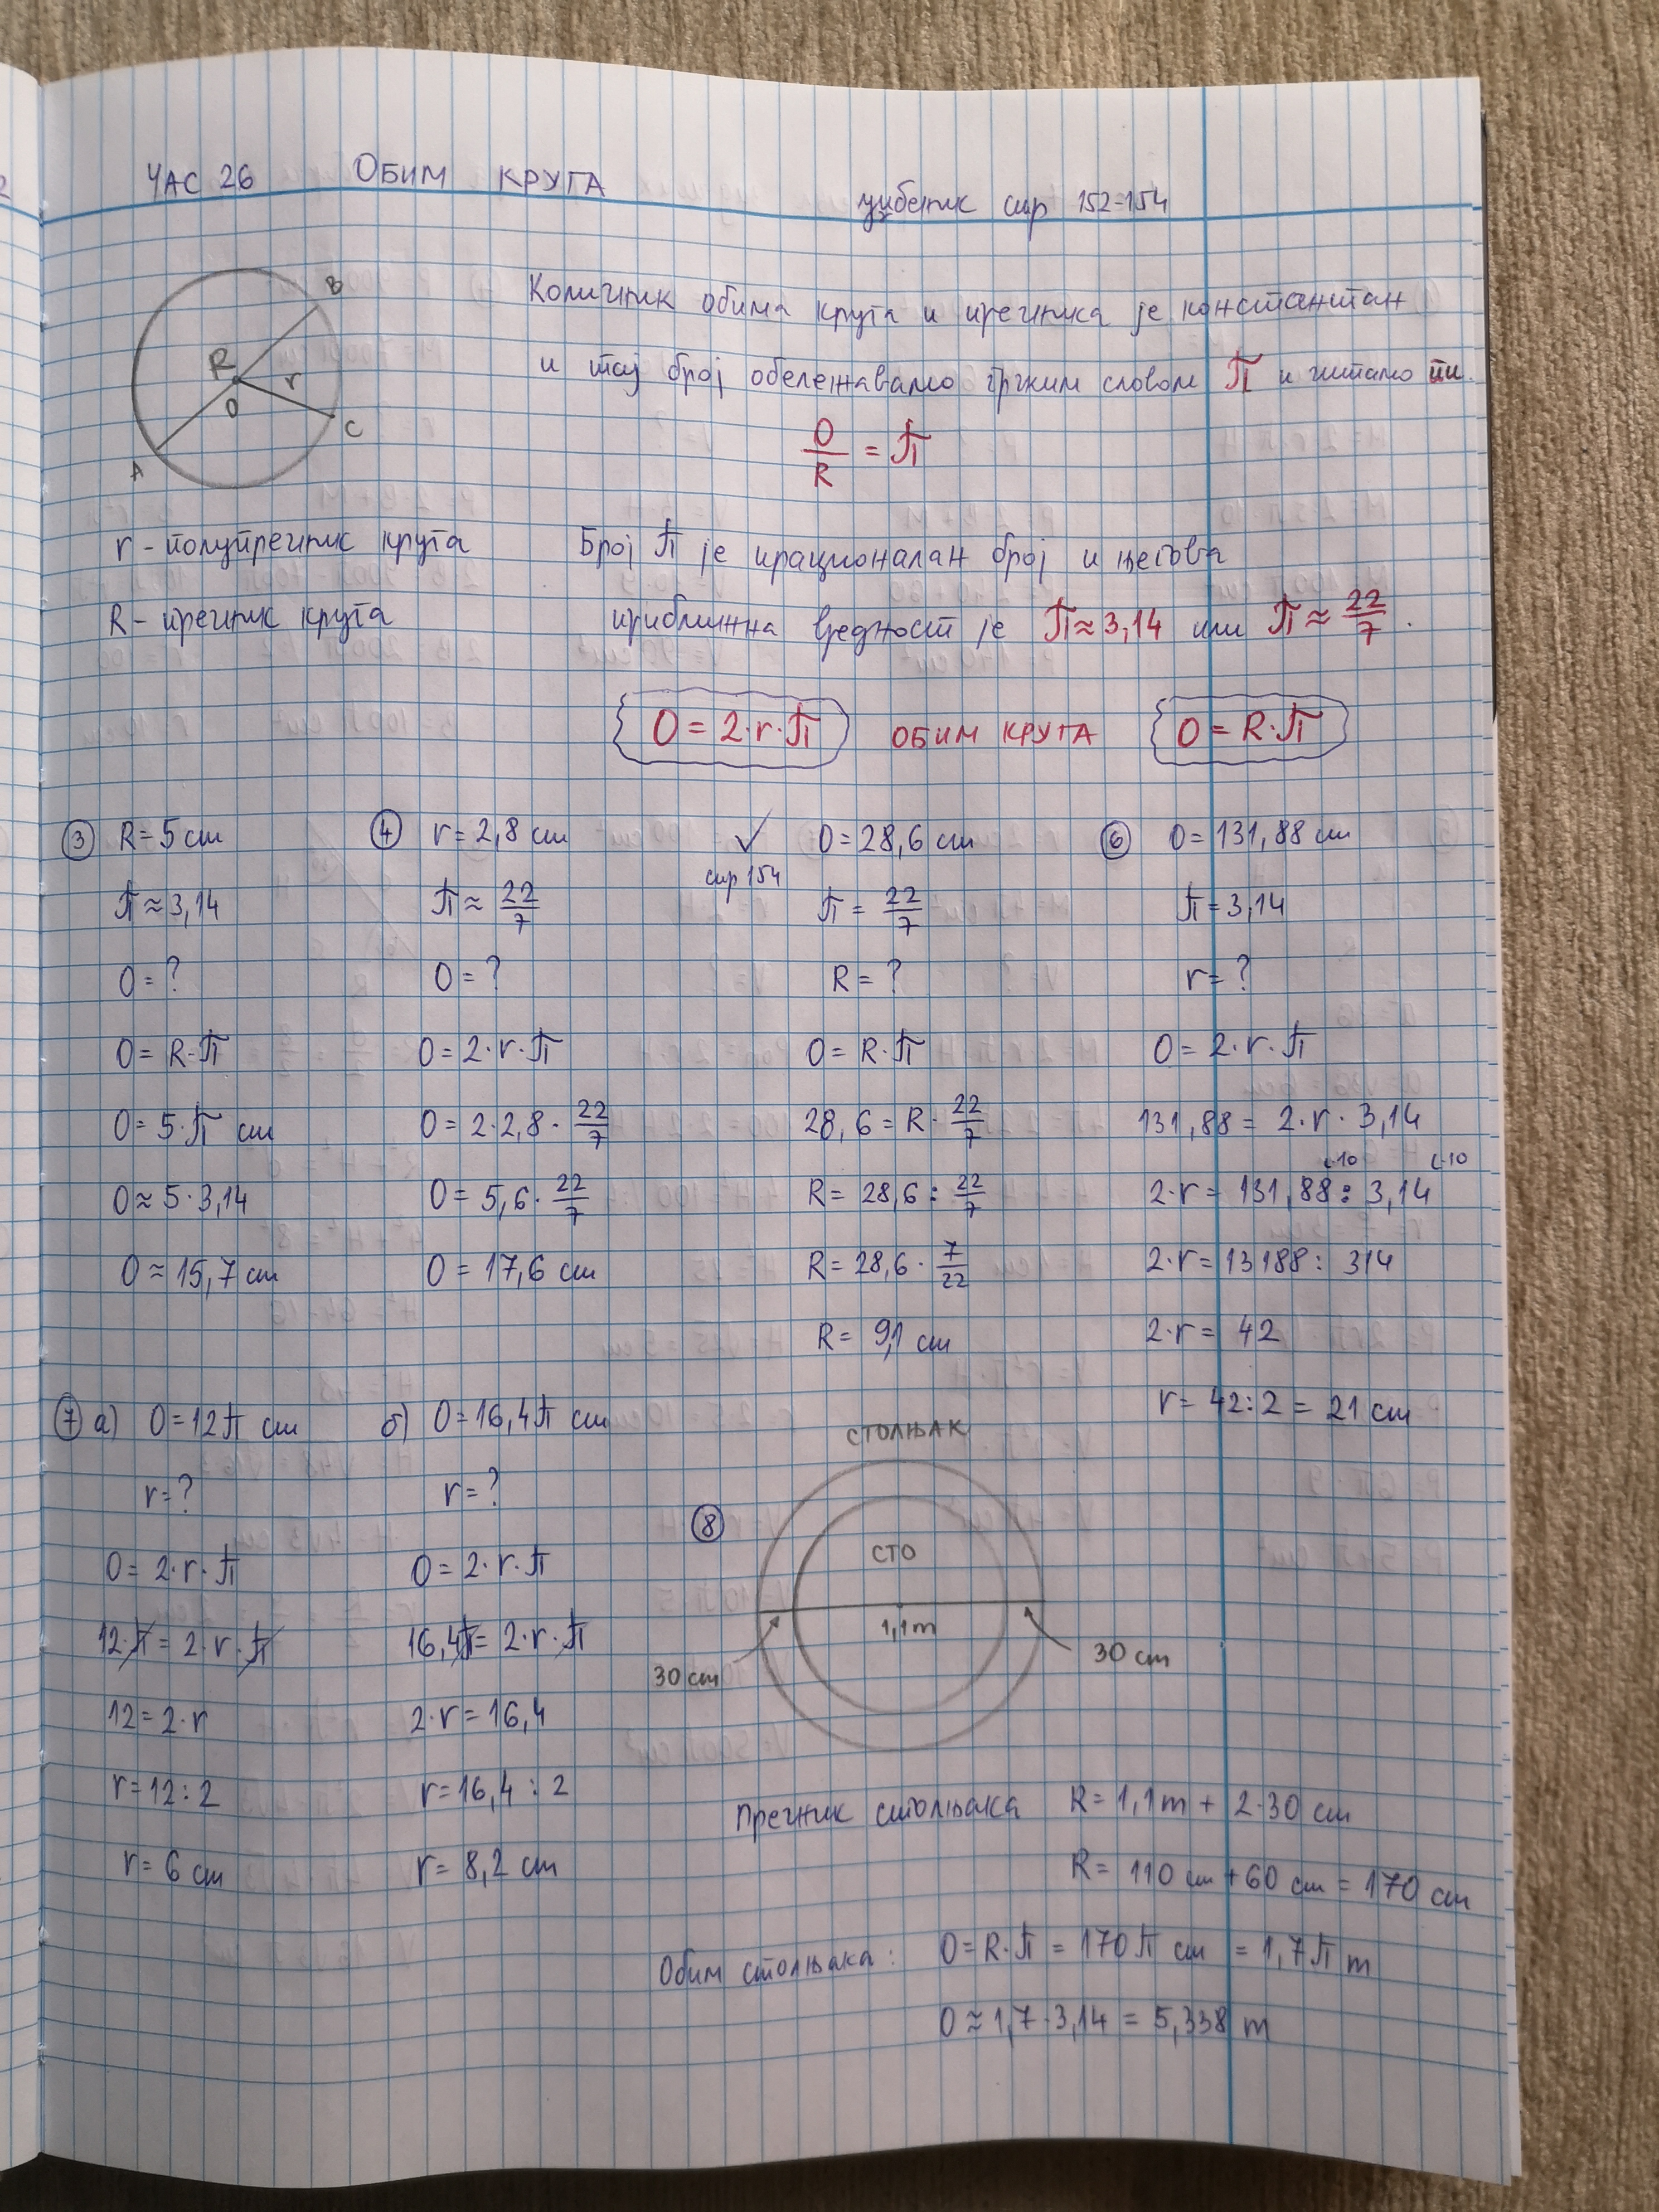 ЧАС 26 ОБИМ КРУГА
уџбеник стр 152-154
B
R
r
O
C
A
Количник обима круга и пречника је константан
и тај број обележавамо грчким словом π и читамо пи.
O/R = π
r - полупречник круга
R - пречник круга
Број π је ирационалан број и његова
приближна вредност је π≈3,14 или π≈22/7.
O = 2·r·π ОБИМ КРУГА O = R·π
③ R = 5 cm
π ≈ 3,14
O = ?
O = R·π
O = 5·π cm
O ≈ 5·3,14
O ≈ 15,7 cm
④ r = 2,8 cm
π ≈ 22/7
O = ?
O = 2·r·π
O = 2·2,8·22/7
O = 5,6·22/7
O = 17,6 cm
✓ O = 28,6 cm
стр 154
π = 22/7
R = ?
O = R·π
28,6 = R·22/7
R = 28,6 : 22/7
R = 28,6·7/22
R = 9,1 cm
⑥ O = 131,88 cm
π = 3,14
r = ?
O = 2·r·π
131,88 = 2·r·3,14
2·r = 131,88 : 3,14
2·r = 13188 : 314
2·r = 42
r = 42:2 = 21 cm
⑦ а) O = 12π cm
r = ?
O = 2·r·π
12·π = 2·r·π
12 = 2·r
r = 12:2
r = 6 cm
б) O = 16,4π cm
r = ?
O = 2·r·π
16,4π = 2·r·π
2·r = 16,4
r = 16,4 : 2
r = 8,2 cm
⑧
СТОЛЊАК
СТО
1,1m
30 cm
30 cm
Пречник столњака R = 1,1m + 2·30 cm
R = 110 cm + 60 cm = 170 cm
Обим столњака: O = R·π = 170π cm = 1,7π m
O ≈ 1,7·3,14 = 5,338 m